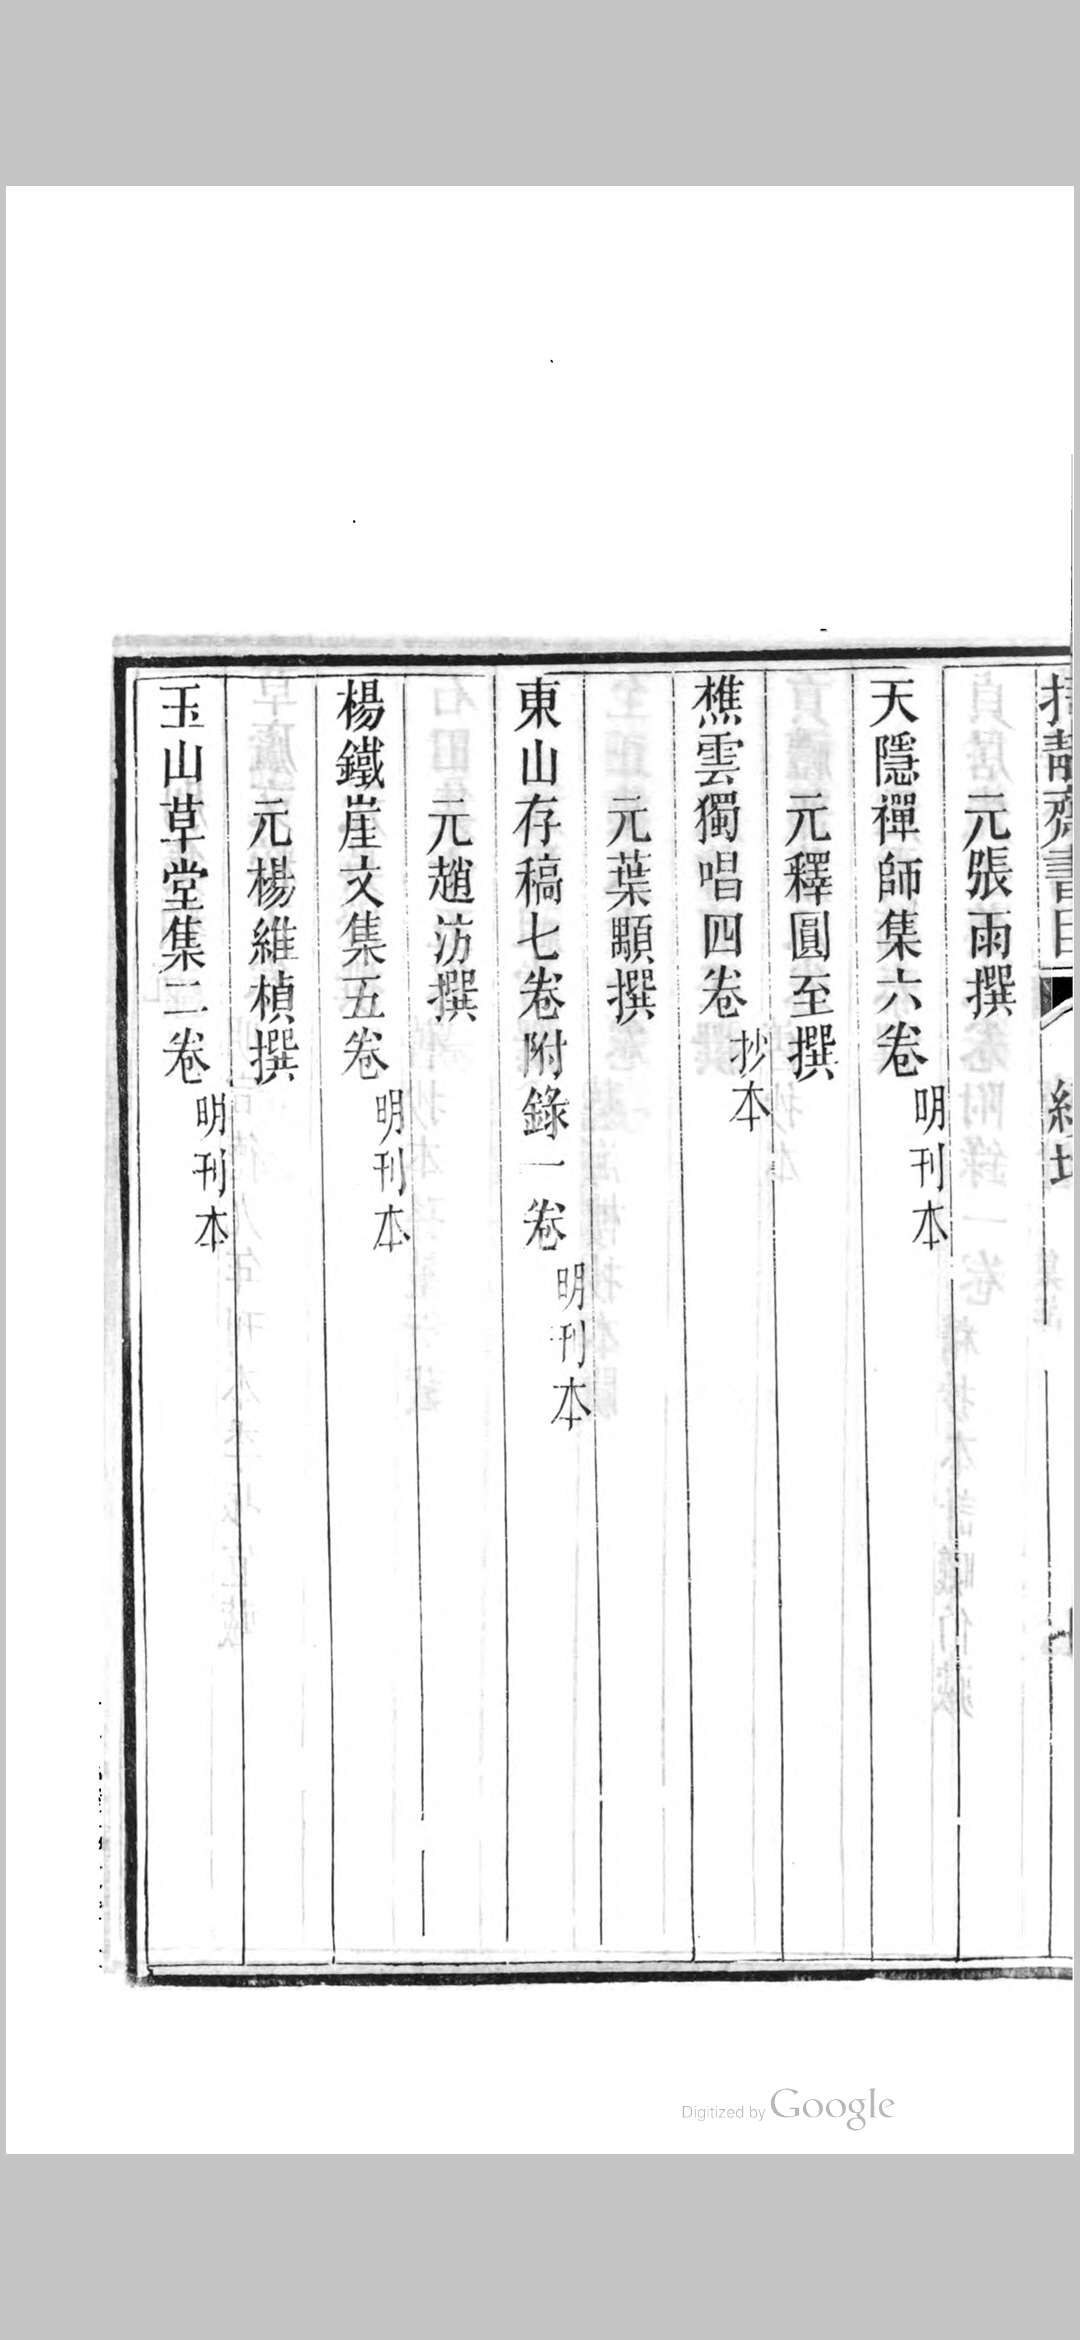 持靜齋書目
元張雨撰
天隱禪師集六卷 明刊本
元釋圓至撰
樵雲獨唱四卷 抄本
元葉顒撰
東山存稿七卷附錄一卷 明刊本
元趙汸撰
楊鐵崖文集五卷 明刊本
元楊維楨撰
玉山草堂集二卷 明刊本
Digitized by Google